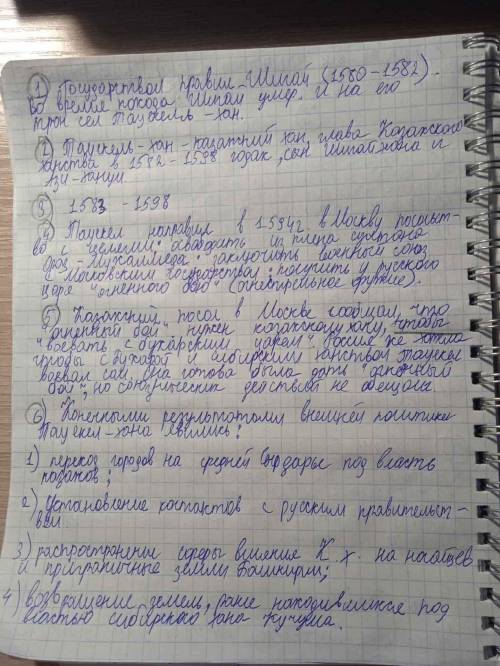 ① Государством правил - Шигай (1580-1582).
Во время похода Шигай умер. и на его
трон сел Таукелль - хан.
② Таукель-хан - казахский хан, глава Казахского
ханства в 1582 - 1598 годах, сын Шигай хана и
Язи-ханум.
③ 1583 - 1598
④ Таукел направил в 1594г. в Москву посольст-
во с целями: освободить из плена султана
Ораз-Мухаммеда; заключить военный союз
с Московским государством; получить у русского
царя "огненного боя" (огнестрельное оружие).
⑤ Казахский посол в Москве сообщал, что
"огненный бой" нужен казахскому хану, чтобы
"воевать с бухарским царем" Россия же хотела
чтобы с Бухарой и сибирским ханством Таукел
воевал сам, она готова была дать "огненный
бой", но союзнических действий не обещала.
⑥ Конечными результатами внешней политики
Тауекел-хана явились:
1) переход городов на средней Сырдарье под власть
казахов;
2) Установление контактов с русским правительст-
вом.
3) распространение сферы влияния К х. на ногайцев
и приграничные земли Башкирии;
4) возвращение земель, ранее находившихся под
властью сибирского хана Кучума.